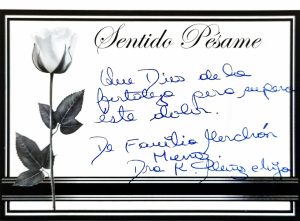 Sentido Pésame
Que Dios de la
fortaleza para superar
este dolor.
De Familia Merchán
Dra K.